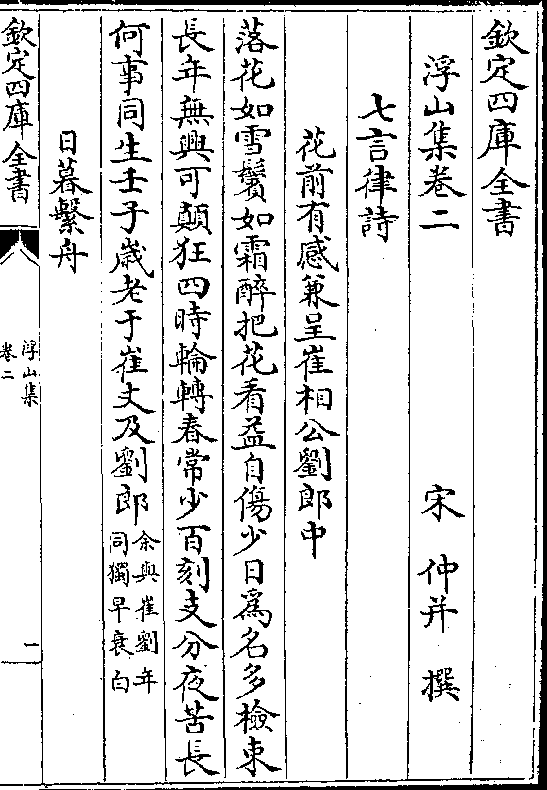 欽定四庫全書
浮山集卷二
宋 仲并 撰
七言律詩
花前有感兼呈崔相公劉郎中
落花如雪鬢如霜醉把花看益自傷少日為名多檢束
長年無興可顛狂四時輪轉春常少百刻支分夜苦長
何事同生壬子歲老于崔丈及劉郎余與崔劉年
同獨早衰白
日暮繫舟
欽定四庫全書
浮山集
卷二
二